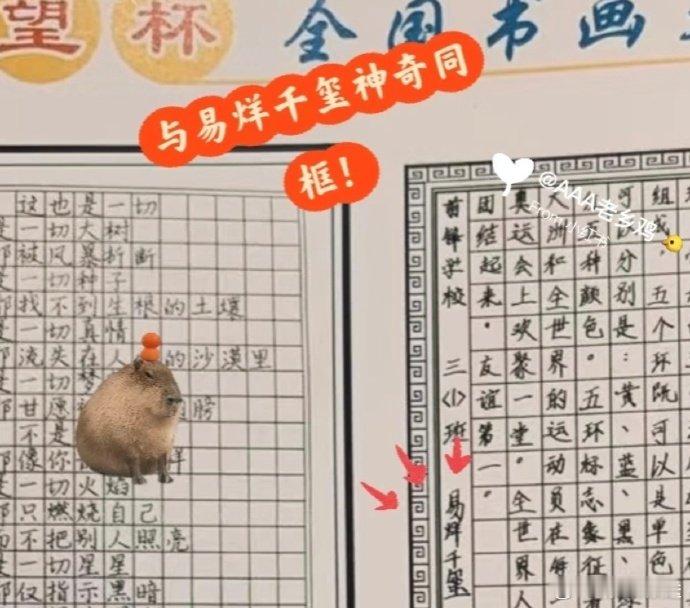 望杯 全国书画
与易烊千玺神奇同
框！
@AAA老乡鸡
From小红书
这也是一切
是一切大树
都被风暴折断
是一切种子
都找不到生根的土壤
是一切真情
都流失在人 的沙漠里
是一切梦
都甘愿 膀
不是
都像你 样
是一切火焰
都只燃烧自己
而不把别人照亮
是一切星星
都仅指示黑暗
组成，五个环 可以是单色
分别是：黄、蓝、黑、
种颜色 五环标志象征
洲和全世界的运动员在
奥运会上欢聚一堂。全世界人
团结起来。友谊第一。
前锋学校 三（1）班 易烊千玺